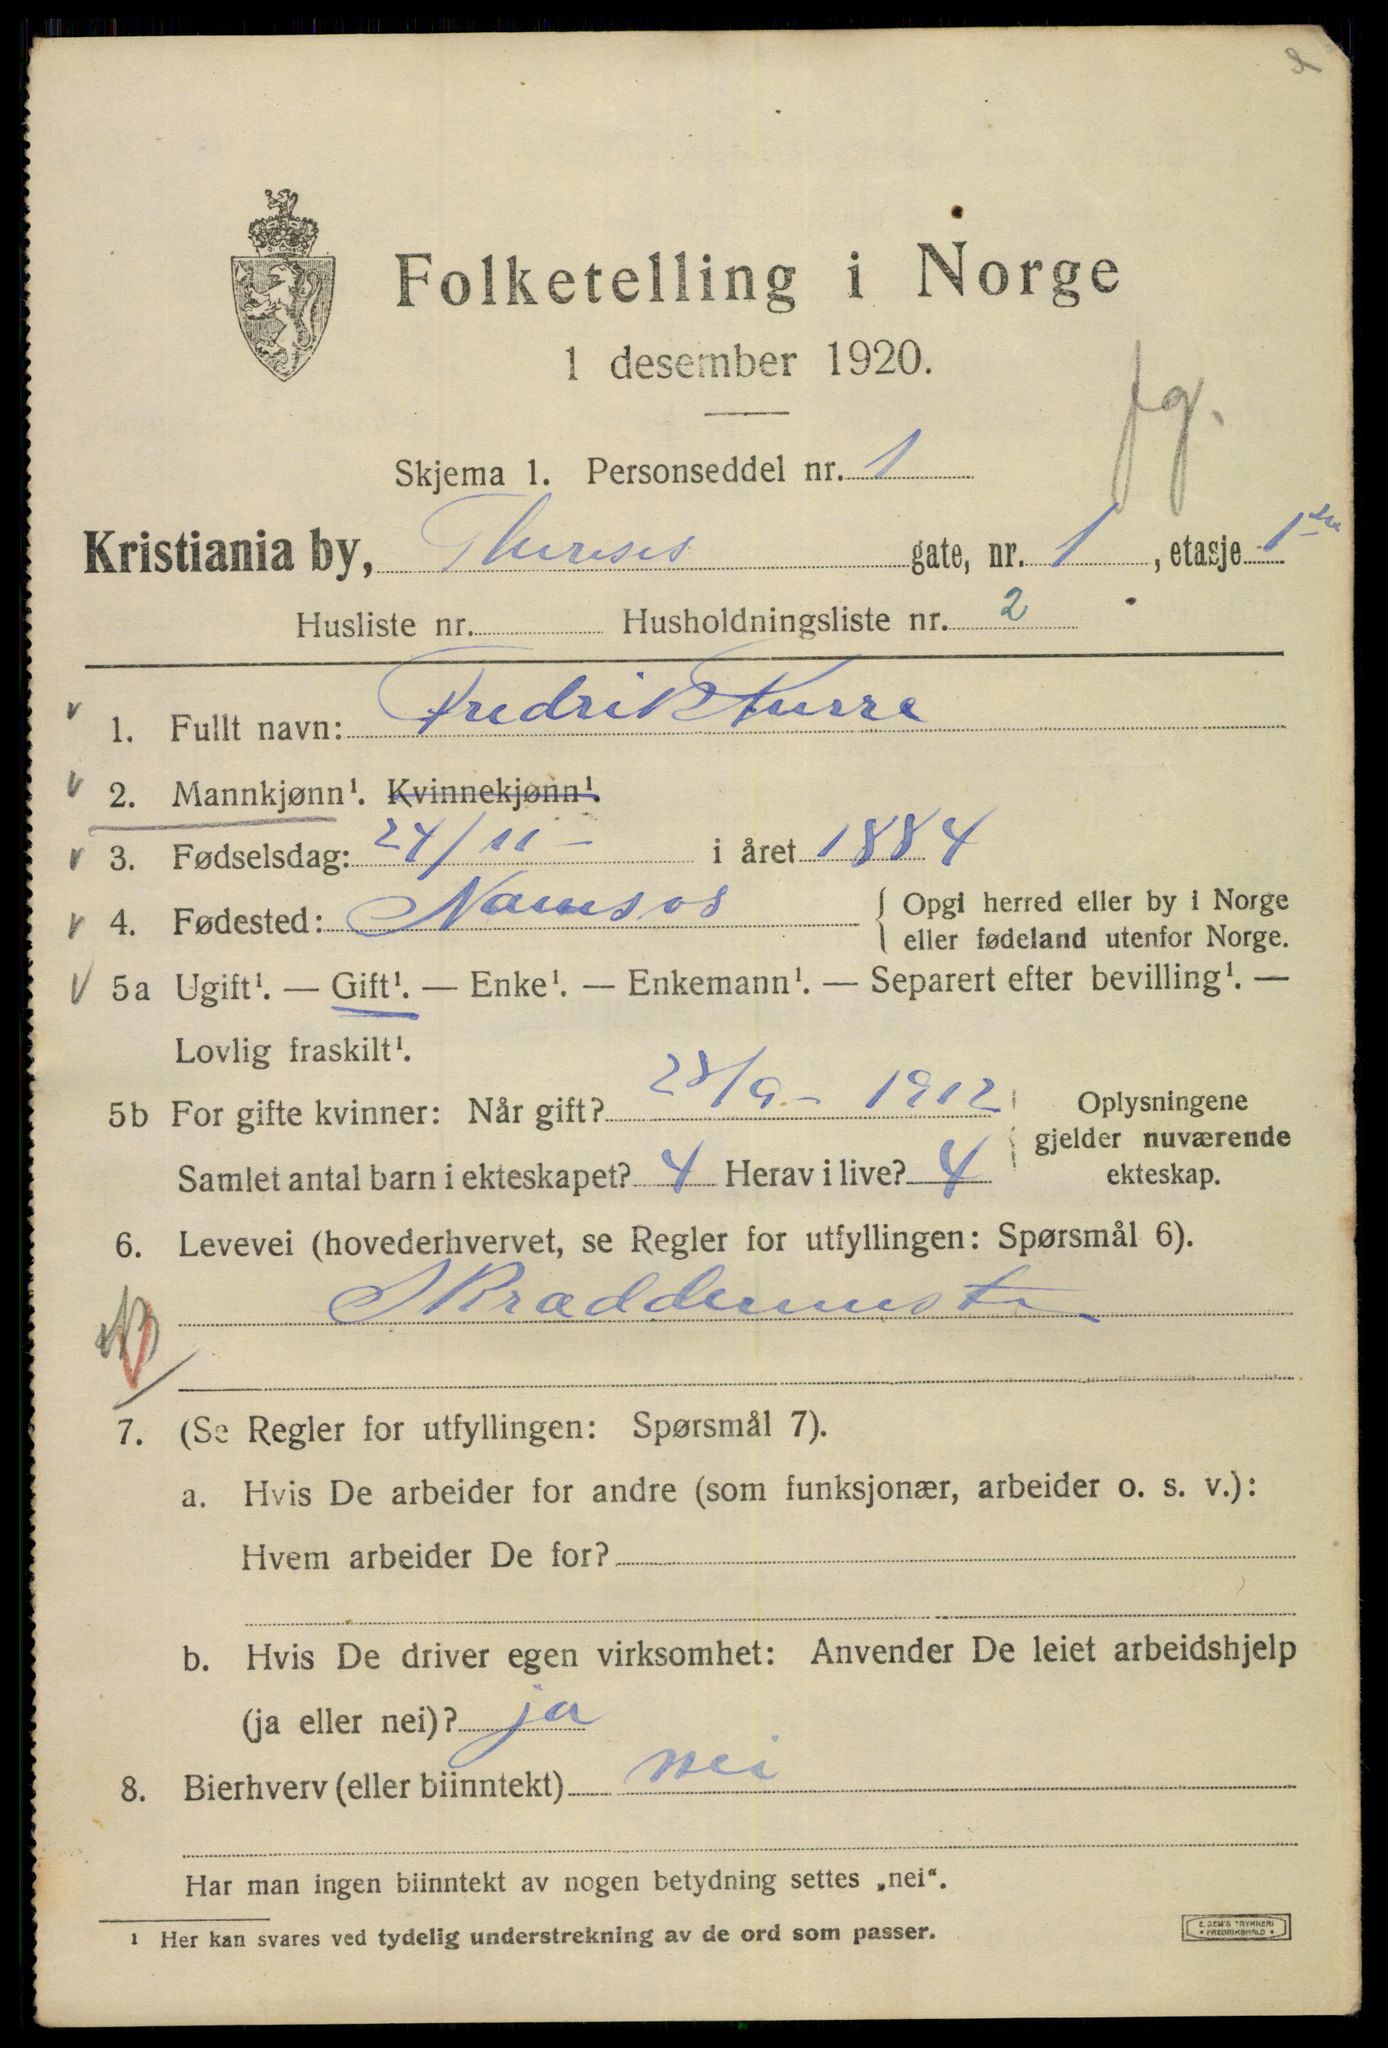 Folketelling i Norge
1 desember 1920.
fg.
Skjema 1. Personseddel nr. 1
Kristiania by, Thereses gate, nr. 1, etasje 1
Husliste nr. Husholdningsliste nr. 2
1. Fullt navn: Fredrik Furre
2. Mannkjønn¹. Kvinnekjønn¹.
3. Fødselsdag: 24/11 - i året 1884
4. Fødested: Namsos { Opgi herred eller by i Norge
eller fødeland utenfor Norge.
5a Ugift¹. — Gift¹. — Enke¹. — Enkemann¹. — Separert efter bevilling¹. —
Lovlig fraskilt¹.
5b For gifte kvinner: Når gift? 28/9 - 1912 Oplysningene
gjelder nuværende
Samlet antal barn i ekteskapet? 4 Herav i live? 4 ekteskap.
6. Levevei (hovederhvervet, se Regler for utfyllingen: Spørsmål 6).
Skræddermester
7. (Se Regler for utfyllingen: Spørsmål 7).
a. Hvis De arbeider for andre (som funksjonær, arbeider o. s. v.):
Hvem arbeider De for?
b. Hvis De driver egen virksomhet: Anvender De leiet arbeidshjelp
(ja eller nei)? ja
8. Bierhverv (eller biinntekt) nei
Har man ingen biinntekt av nogen betydning settes „nei“.
¹ Her kan svares ved tydelig understrekning av de ord som passer.
E. SEM'S TRYKKERI
* FREDRIKSHALD *